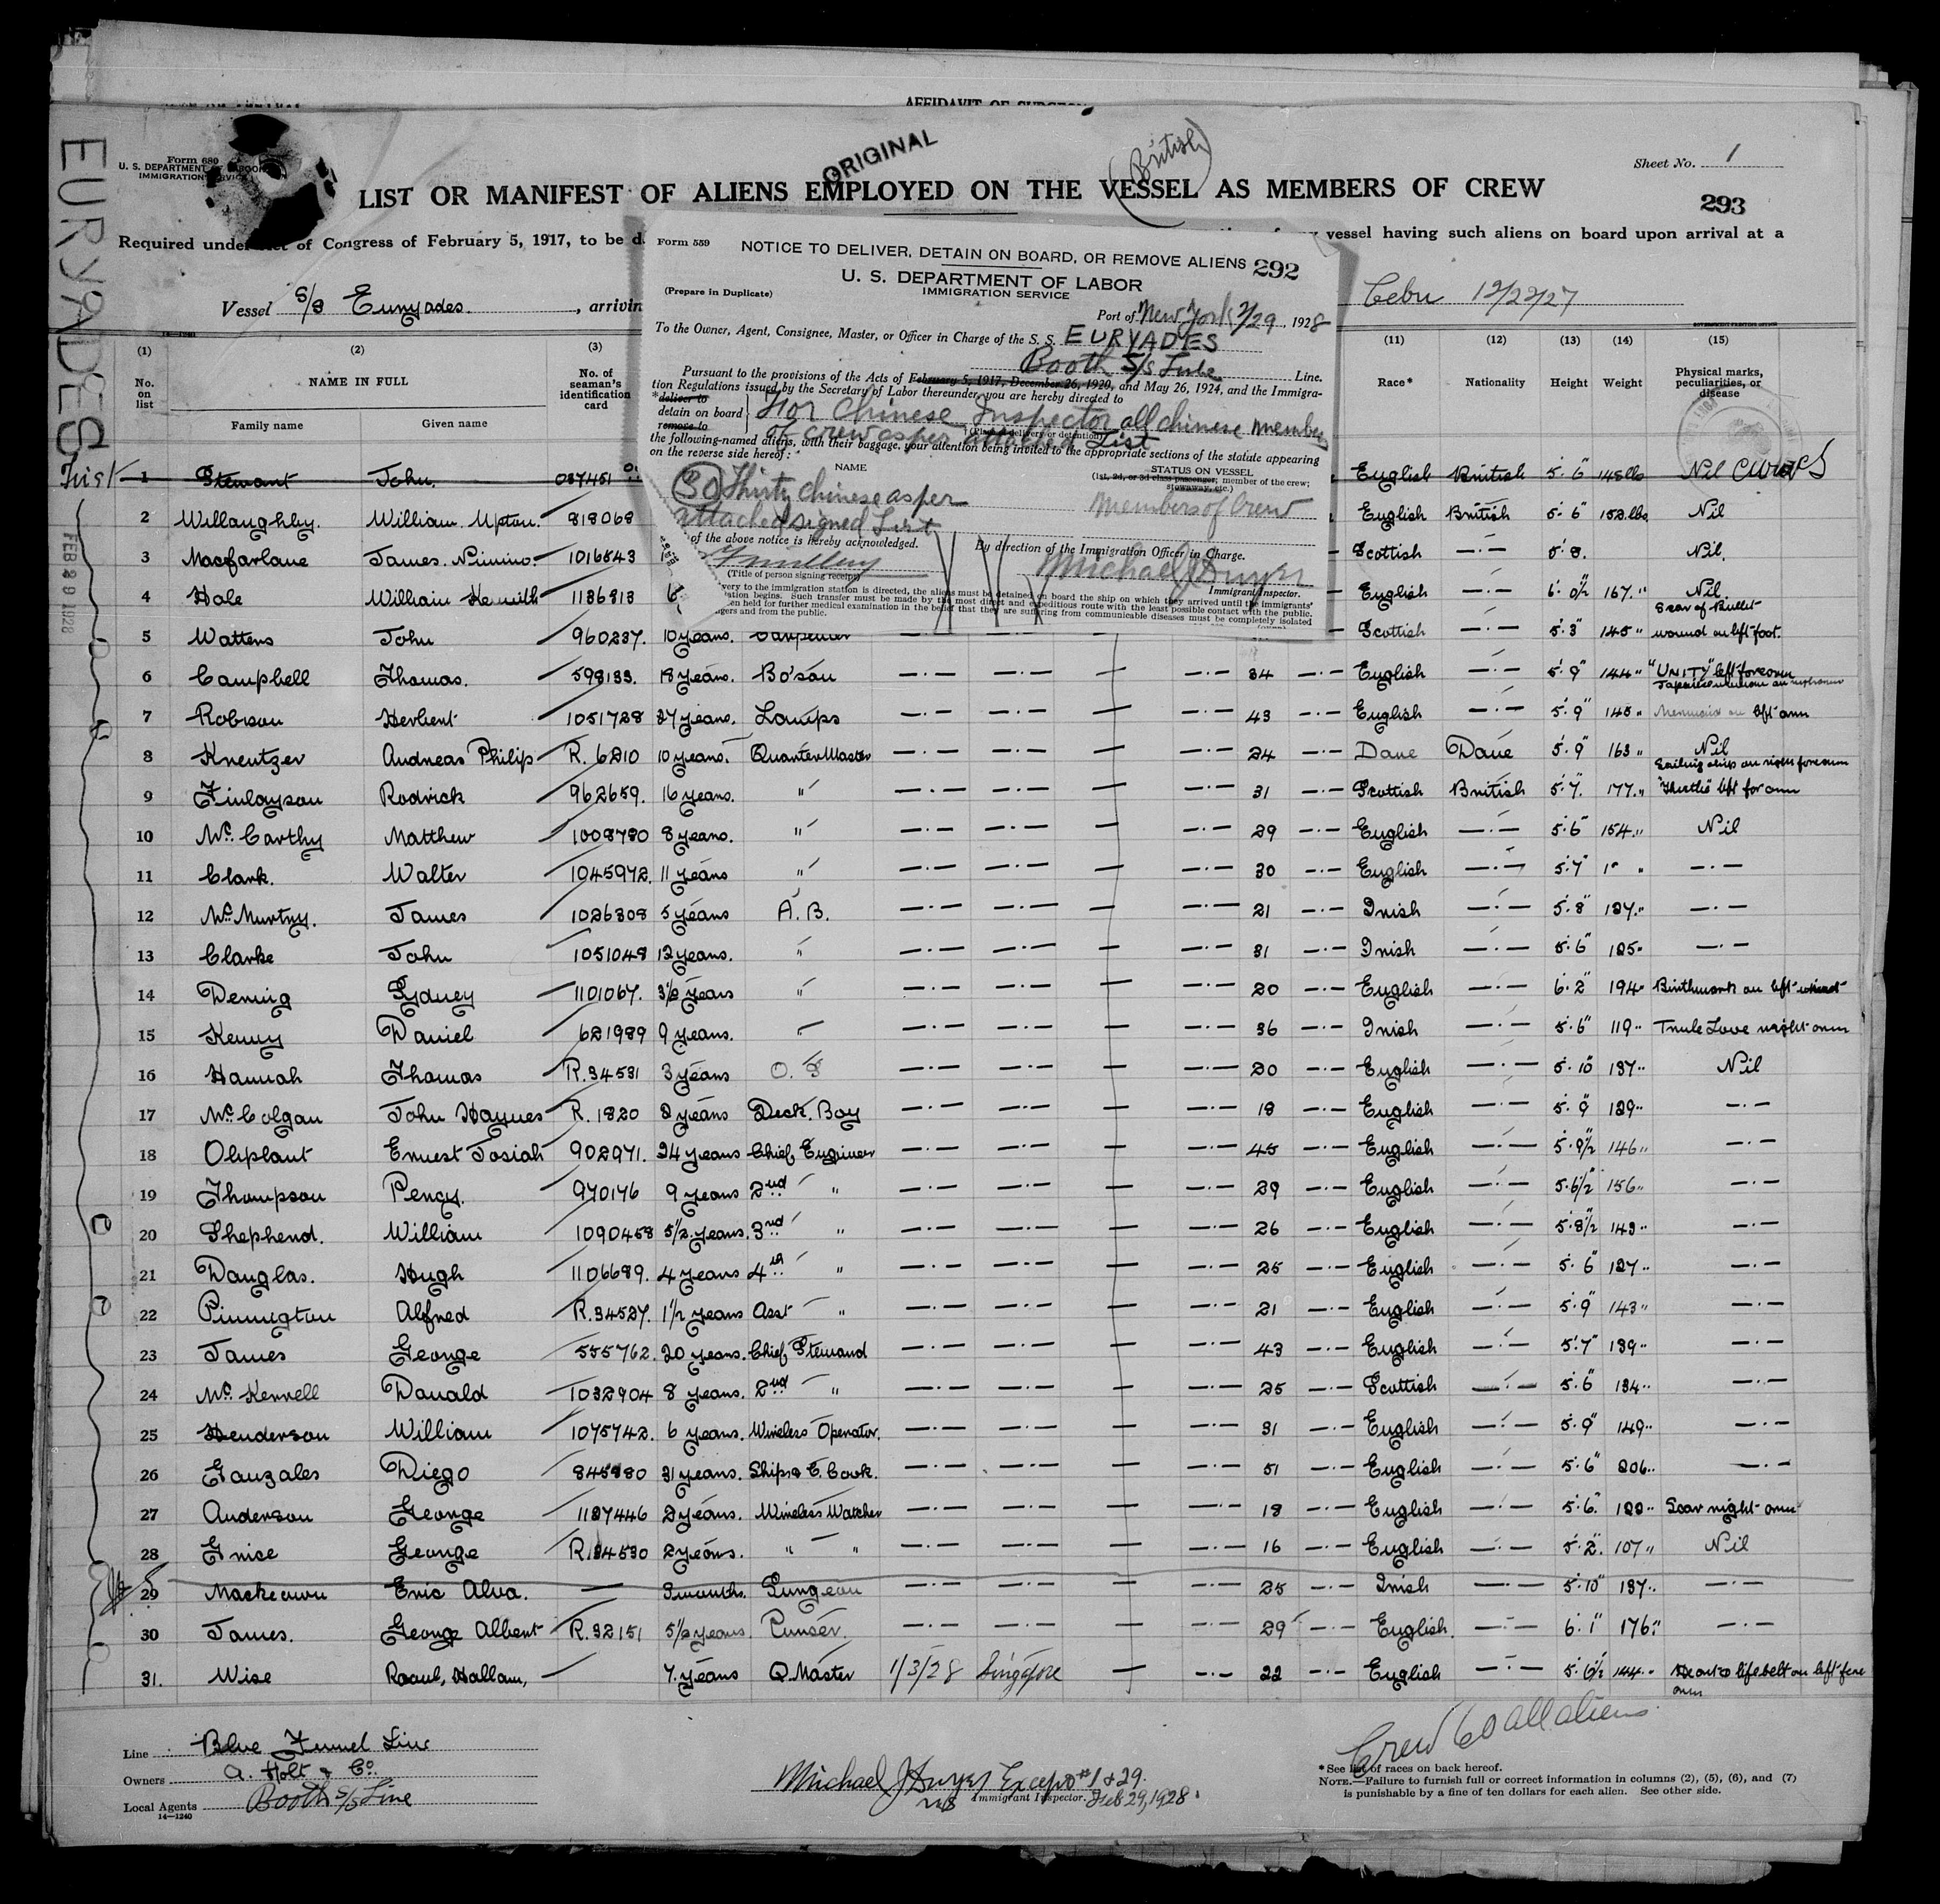 AFFIDAVIT OF SURGEON
EURYADES
Form 680
U. S. DEPARTMENT OF LABOR
IMMIGRATION SERVICE
ORIGINAL
(British)
Sheet No. 1
LIST OR MANIFEST OF ALIENS EMPLOYED ON THE VESSEL AS MEMBERS OF CREW
293
Required under Act of Congress of February 5, 1917, to be d
vessel having such aliens on board upon arrival at a
Vessel S/S Euryades. , arrivin
Cebu 12/22/27
Form 559
NOTICE TO DELIVER, DETAIN ON BOARD, OR REMOVE ALIENS 292
U. S. DEPARTMENT OF LABOR
IMMIGRATION SERVICE
(Prepare in Duplicate)
Port of New York 2/29, 1928
To the Owner, Agent, Consignee, Master, or Officer in Charge of the S. S. EURYADES
Booth S/S Line Line.
Pursuant to the provisions of the Acts of February 5, 1917, December 26, 1920, and May 26, 1924, and the Immigra-
tion Regulations issued by the Secretary of Labor thereunder, you are hereby directed to
*deliver to
detain on board
remove to
For Chinese Inspector all chinese members
of crew as per attached List
(Place of delivery or detention)
the following-named aliens, with their baggage, your attention being invited to the appropriate sections of the statute appearing
on the reverse side hereof:
NAME
STATUS ON VESSEL
(1st, 2d, or 3d class passenger; member of the crew;
stowaway, etc.)
(30) Thirty chinese as per
attached signed List
Members of Crew
of the above notice is hereby acknowledged.
By direction of the Immigration Officer in Charge.
(Title of person signing receipt)
Michael J Dwyer
Immigrant Inspector.
very to the immigration station is directed, the aliens must be detained on board the ship on which they arrived until the immigrants'
ation begins. Such transfer must be made by the most direct and expeditious route with the least possible contact with the public.
en held for further medical examination in the belief that they are suffering from communicable diseases must be completely isolated
gers and from the public.
(1) (2) (3) (11) (12) (13) (14) (15)
No. on list NAME IN FULL No. of seaman's identification card Race* Nationality Height Weight Physical marks, peculiarities, or disease
Family name Given name
1 Stewart John. 037451 English British 5' 6" 148 lbs Nil
2 Willoughby. William Upton. 818068 English British 5' 6" 153 lbs Nil
3 Macfarlane James. Nimmo. 1016843 Scottish —·— 5' 8. Nil.
4 Hale William Kenrith 1136813 English —·— 6' 0½ 167 " Nil.
5 Watters John 960237. 10 years. Carpenter Scottish —·— 5' 3" 145 " Scar of Bullet wound on left foot.
6 Campbell Thomas. 598133. 18 years. Bo'sun —·— —·— — —·— 34 —·— English —·— 5' 9" 144 " "UNITY" left forearm
7 Robson Herbert 1051728 27 years. Lamps —·— —·— — —·— 43 —·— English —·— 5' 9" 145 " Mermaid on left arm
8 Kreutzer Andreas Philip R. 6210 10 years. Quarter Master —·— —·— — —·— 24 —·— Dane Dane 5' 9" 163 " Nil
9 Finlayson Rodrick 962659. 16 years. " —·— —·— — —·— 31 —·— Scottish British 5' 7" 177 " Sailing ship on right forearm "Thistle" left forearm
10 Mc. Carthy Matthew 1008780 8 years. " —·— —·— — —·— 29 —·— English —·— 5' 6" 154 " Nil
11 Clark. Walter 1045972. 11 years " —·— —·— — —·— 30 —·— English —·— 5' 7" —·—
12 Mc. Murtry. James 1026308 5 years A. B. —·— —·— — —·— 21 —·— Irish —·— 5' 8" 127 " —·—
13 Clarke John 1051048 12 years. " —·— —·— — —·— 31 —·— Irish —·— 5' 6" 125 " —·—
14 Dering Sydney 1101067. 3½ years " —·— —·— — —·— 20 —·— English —·— 6' 2" 194 " Birthmark on left wrist
15 Kenny Daniel 621989 9 years. " —·— —·— — —·— 36 —·— Irish —·— 5' 6" 119 " True Love right arm
16 Hannah Thomas R. 34531 3 years O. S —·— —·— — —·— 20 —·— English —·— 5' 10" 137 " Nil
17 Mc. Colgan John Haynes R. 1820 2 years Deck. Boy —·— —·— — —·— 18 —·— English —·— 5' 9" 129 " —·—
18 Oliphant Ernest Josiah 902971. 24 years Chief Engineer —·— —·— — —·— 45 —·— English —·— 5' 9½ 146 " —·—
19 Thompson Percy. 970176 9 years 2nd " —·— —·— — —·— 29 —·— English —·— 5' 6½" 156 " —·—
20 Shepherd. William 1090458 5½ years. 3rd " —·— —·— — —·— 26 —·— English —·— 5' 8½" 143 " —·—
21 Douglas. Hugh 1106689. 4 years 4th " —·— —·— — —·— 25 —·— English —·— 5' 6" 127 " —·—
22 Pinnington Alfred R. 34527. 1½ years Asst " —·— —·— — —·— 21 —·— English —·— 5' 9" 143 " —·—
23 James George 555762. 20 years. Chief Steward —·— —·— — —·— 43 —·— English —·— 5' 7" 139 " —·—
24 Mc. Kerrell Donald 1032904 8 years. 2nd " —·— —·— — —·— 25 —·— Scottish —·— 5' 6" 134 " —·—
25 Henderson William 1075742. 6 years. Wireless Operator. —·— —·— — —·— 31 —·— English —·— 5' 9" 149 " —·—
26 Gonzales Diego 845980 31 years. Ships & C. Cook. —·— —·— — —·— 51 —·— English —·— 5' 6" 206 " —·—
27 Anderson George 1127446 2 years. Wireless Watcher —·— —·— — —·— 18 —·— English —·— 5' 6" 122 " Scar right arm
28 Grice George R. 34530 2 years. " " —·— —·— — —·— 16 —·— English —·— 5' 2" 107 " Nil
29 Mackeown Eric Alva. — 3 months. Surgeon —·— —·— — —·— 25 —·— Irish —·— 5' 10" 137 " —·—
30 James. George Albert R. 32151 5½ years. Purser. —·— —·— — —·— 29 —·— English. —·— 6' 1" 176 " —·—
31. Wise Raoul, Hallam, 7. years Q. Master 1/3/28 Singapore — —·— 22 —·— English —·— 5' 6½ 144 " Heart & lifebelt on left fore arm
FEB 29 1928
Crew 60 all aliens
Line Blue Funnel Line
Owners A. Holt & Co.
Local Agents Booth S/S Line
14—1240
Michael J Dwyer Except #1 & 29.
Immigrant Inspector. Feb 29, 1928.
*See list of races on back hereof.
NOTE.—Failure to furnish full or correct information in columns (2), (5), (6), and (7)
is punishable by a fine of ten dollars for each alien. See other side.